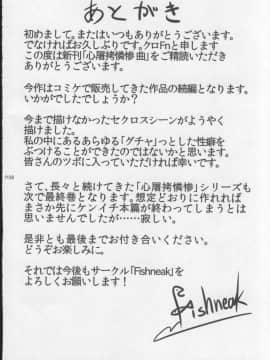 あとがき
初めまして。またはいつもありがとうございます。
でなければお久しぶりです。クロFnと申します
この度は新刊「心屠拷憐惨曲」をご精読いただき
ありがとうございます。
今作はコミケで販売してきた作品の続編となります。
いかがでしたでしょうか？
今まで描けなかったセクロスシーンがようやく
描けました。
私の中にあるあらゆる「グチャ」っとした性癖を
ぶつけることができたのではないかと思います。
皆さんのツボに入っていただければ幸いです。
さて、長々と続けてきた「心屠拷憐惨」シリーズも
次で最終巻となります。想定どおりに作れれば
まさか先にケンイチ本篇が終わってしまうとは
思いませんでしたが……寂しい。
是非とも最後までお付き合いください。
どうぞお楽しみに。
それでは今後もサークル「Fishneak」を
よろしくお願いします！
Fishneak